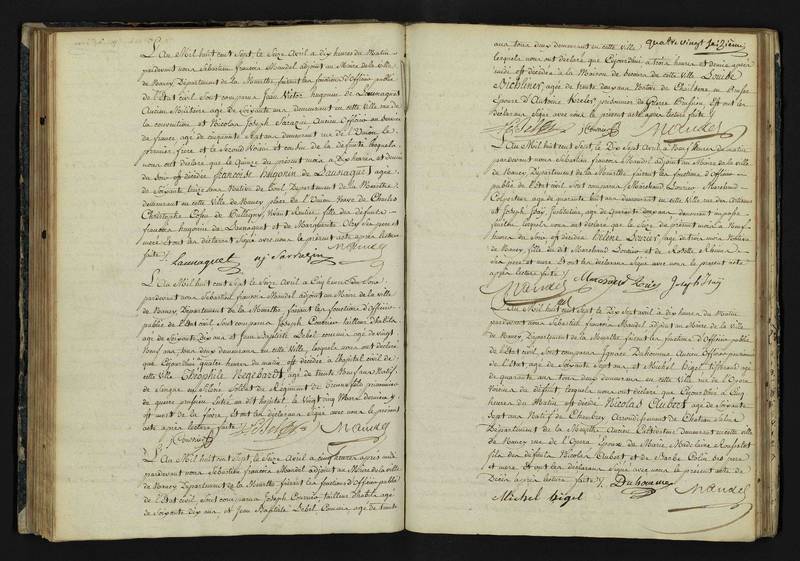 L'An Mil huit cent Sept, le Seize Avril a dix heures du Matin
pardevant nous Sébastien françois Mandel adjoint au Maire de la ville
de Nancy Département de la Meurthe, faisant les fonctions d'officier public
de l'État civil Sont comparus Jean Victor hugonin de Launaguet
Ancien Militaire agé de Soixante ans demeurant en cette ville rue de
la convention et Nicolas Joseph Sarazin Ancien Officier au Service
de france agé de Cinquante Sept ans demeurant rue de l'Union, le
premier frere et le Second Voisin et cousin de la defunte lesquels
nous ont déclaré que le Quinze du présent mois a Dix heures et demie
du Soir est décédée francoise hugonin de Launaguet agée
de Soixante treize ans Native de Toul Département de la Meurthe
demeurant en cette ville de Nancy place de l'Union Veuve de Charles
Christophe de fille des défunts
francois hugonin de Launaguet et de Marguerite ses pere et
mere. Et ont les déclarans Signé avec nous le présent acte après lecture
faite
Launaguet nj Sarrazin Mandel
L'An Mil huit cent Sept le Seize Avril a Cinq heures du Soir
pardevant nous Sébastien francois Mandel adjoint au Maire de la ville
de Nancy, Département de la Meurthe, faisant les fonctions d'officier
public de l'État civil, Sont comparus Joseph Couvrier tailleur d'habits
agé de Soixante dix ans et Jean Baptiste Lebel commis agé de trente
ans, tous deux demeurant en cette ville, lesquels nous ont déclaré
que Cejourd'hui quatre heures du matin, est décédé a l'hopital civil de
cette ville Théophile Negebardt agé de trente Neuf ans Natif
de Soldat du Régiment de prisonnier
de guerre entré au dit hopital le Vingt cinq Mars dernier
et mort de la fievre Et ont les déclarans Signé avec nous le présent
acte après lecture faite
Couvrier Lebel Mandel
L'An Mil huit cent Sept, le Seize Avril a cinq heures après midi
pardevant nous Sébastien francois Mandel adjoint au Maire de la ville
de Nancy Département de la Meurthe faisant les fonctions d'officier public
de l'État civil Sont comparus Joseph Couvrier tailleur d'habits agé
de Soixante dix ans et Jean Baptiste Lebel Commis agé de trente
quatre vingt seizième
ans, tous deux demeurant en cette ville
lesquels nous ont déclaré que Cejourd'hui a trois heures et demie après
midi est décédée a la Maison de Secours de cette ville Louise
agée de trente deux ans Native de en Prusse
Epouse d'Antoine prisonnier de Guerre Prussien Et ont les
déclarans Signé avec nous le présent acte après lecture faite
Lebel Couvrier Mandel
L'An Mil huit cent Sept, le Dix Sept Avril a Neuf heures du matin
pardevant nous Sébastien francois Mandel adjoint au Maire de la ville
de Nancy, Département de la Meurthe, faisant les fonctions d'officier
public de l'État civil Sont comparus Marchand Marchand
Colporteur agé de quarante huit ans demeurant en cette ville rue des Artisans
et Joseph Isay Instituteur, agé de quarante deux ans demeurant
lesquels nous ont déclaré que le Seize de présent mois a Neuf
heures du Soir est décédée agée de trois mois Native
de Nancy fille du dit Marchand et de Rosette
Ses père et mere Et ont les déclarans Signé avec nous le présent acte
après lecture faite
Mandel Joseph Isay
L'An Mil huit cent Sept le Dix Sept avril a dix heures du Matin
pardevant nous Sébastien francois Mandel adjoint au Maire de la Ville
de Nancy Département de la Meurthe faisant les fonctions d'officier public
de l'État civil, Sont comparus Ignace Duhoume Ancien Officier pensionné
de l'État agé de Soixante Sept ans et Michel higel tisserand agé
de quarante ans tous deux demeurant en cette ville rue de l'opera
Voisins du défunt lesquels nous ont déclaré que Cejourd'hui a Cinq
heures du Matin est décédé Nicolas Aubert agé de Soixante
Sept ans Natif de Arrondissement de Chateau Salins
Département de la Meurthe Ancien Cultivateur demeurant en cette ville
de Nancy rue de l'Opera, Epoux de Marie Madelaine
fils des défunts Nicolas Aubert et de Barbe Colin Ses pere
et mere, Et ont les déclarans Signé avec nous le présent acte de
Décès après lecture faite Duhoume
Michel higel Mandel